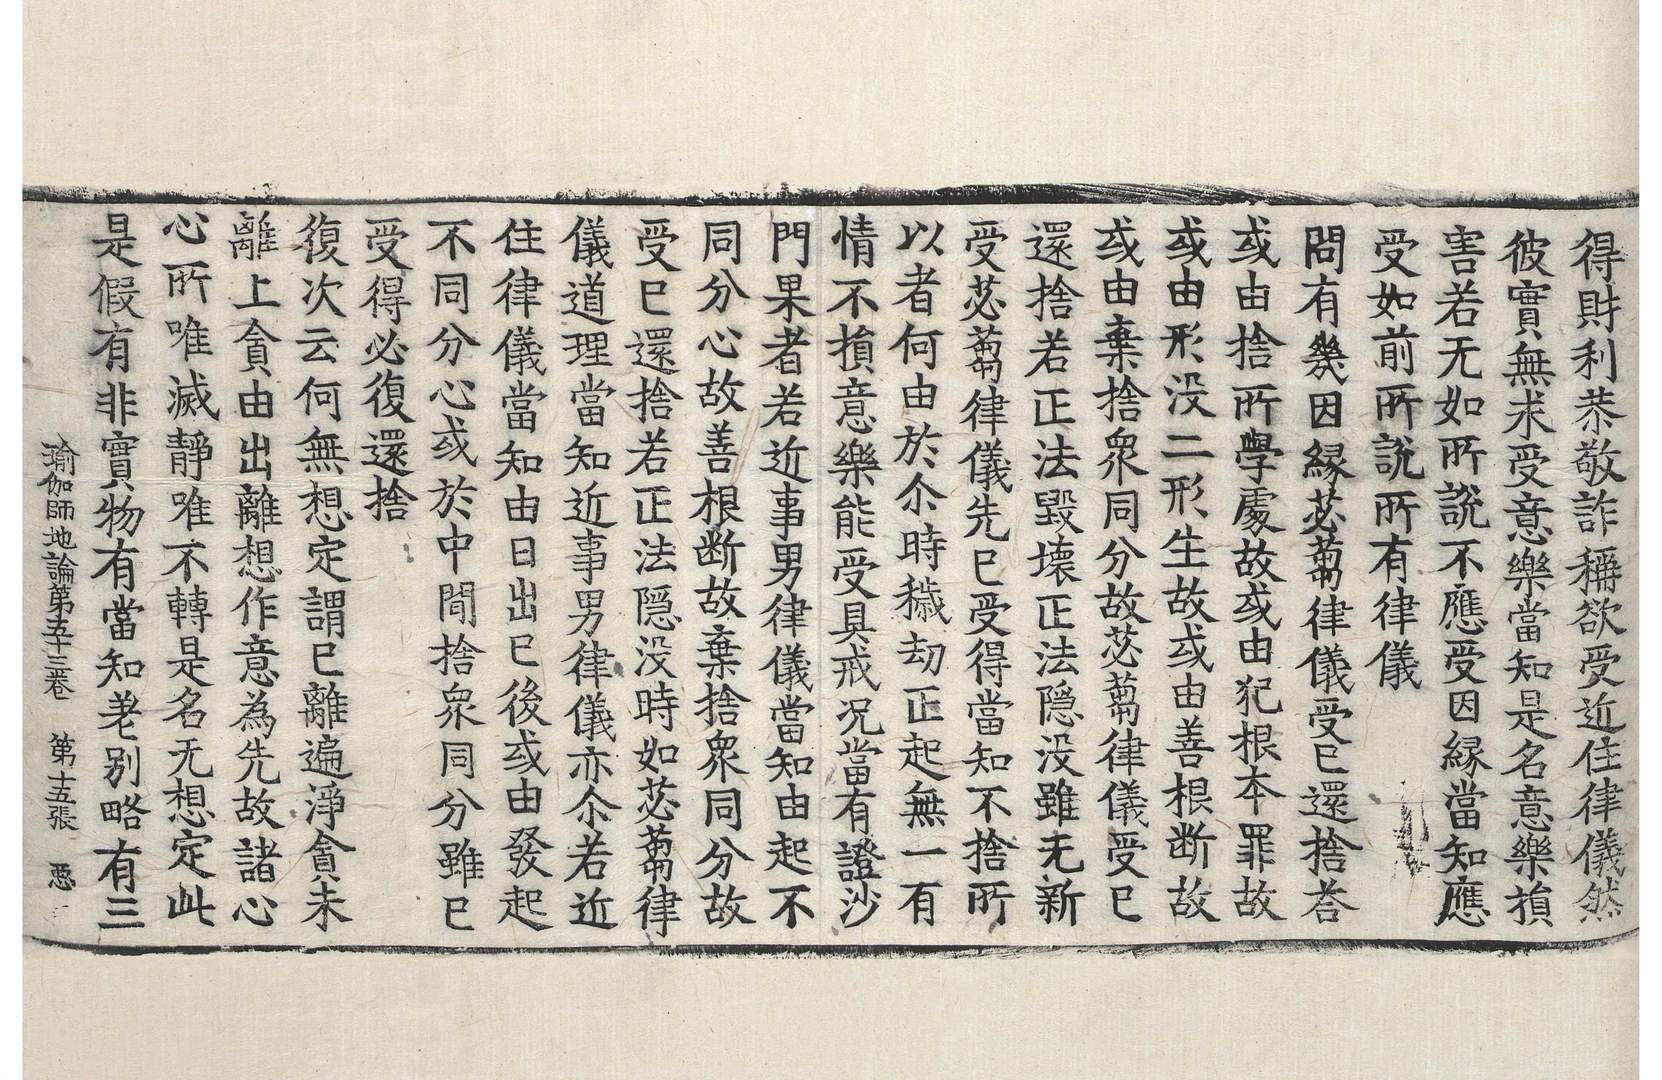 得財利恭敬詐稱欲受近住律儀然
彼實無求受意樂當知是名意樂損
害若无如所說不應受因緣當知應
受如前所說所有律儀
問有幾因緣苾蒭律儀受已還捨荅
或由捨所學處故或由犯根本罪故
或由形没二形生故或由善根断故
或由棄捨衆同分故苾蒭律儀受已
還捨若正法毀壞正法隱没雖无新
受苾蒭律儀先已受得當知不捨所
以者何由於尒時穢劫正起無一有
情不損意樂能受具戒况當有證沙
門果者若近事男律儀當知由起不
同分心故善根断故棄捨衆同分故
受已還捨若正法隱没時如苾蒭律
儀道理當知近事男律儀亦尒若近
住律儀當知由日出已後或由發起
不同分心或於中間捨衆同分雖已
受得必復還捨
復次云何無想定謂已離遍淨貪未
離上貪由出離想作意為先故諸心
心所唯滅靜唯不轉是名无想定此
是假有非實物有當知差别略有三
瑜伽師地論第五十三卷 第十五張 惡